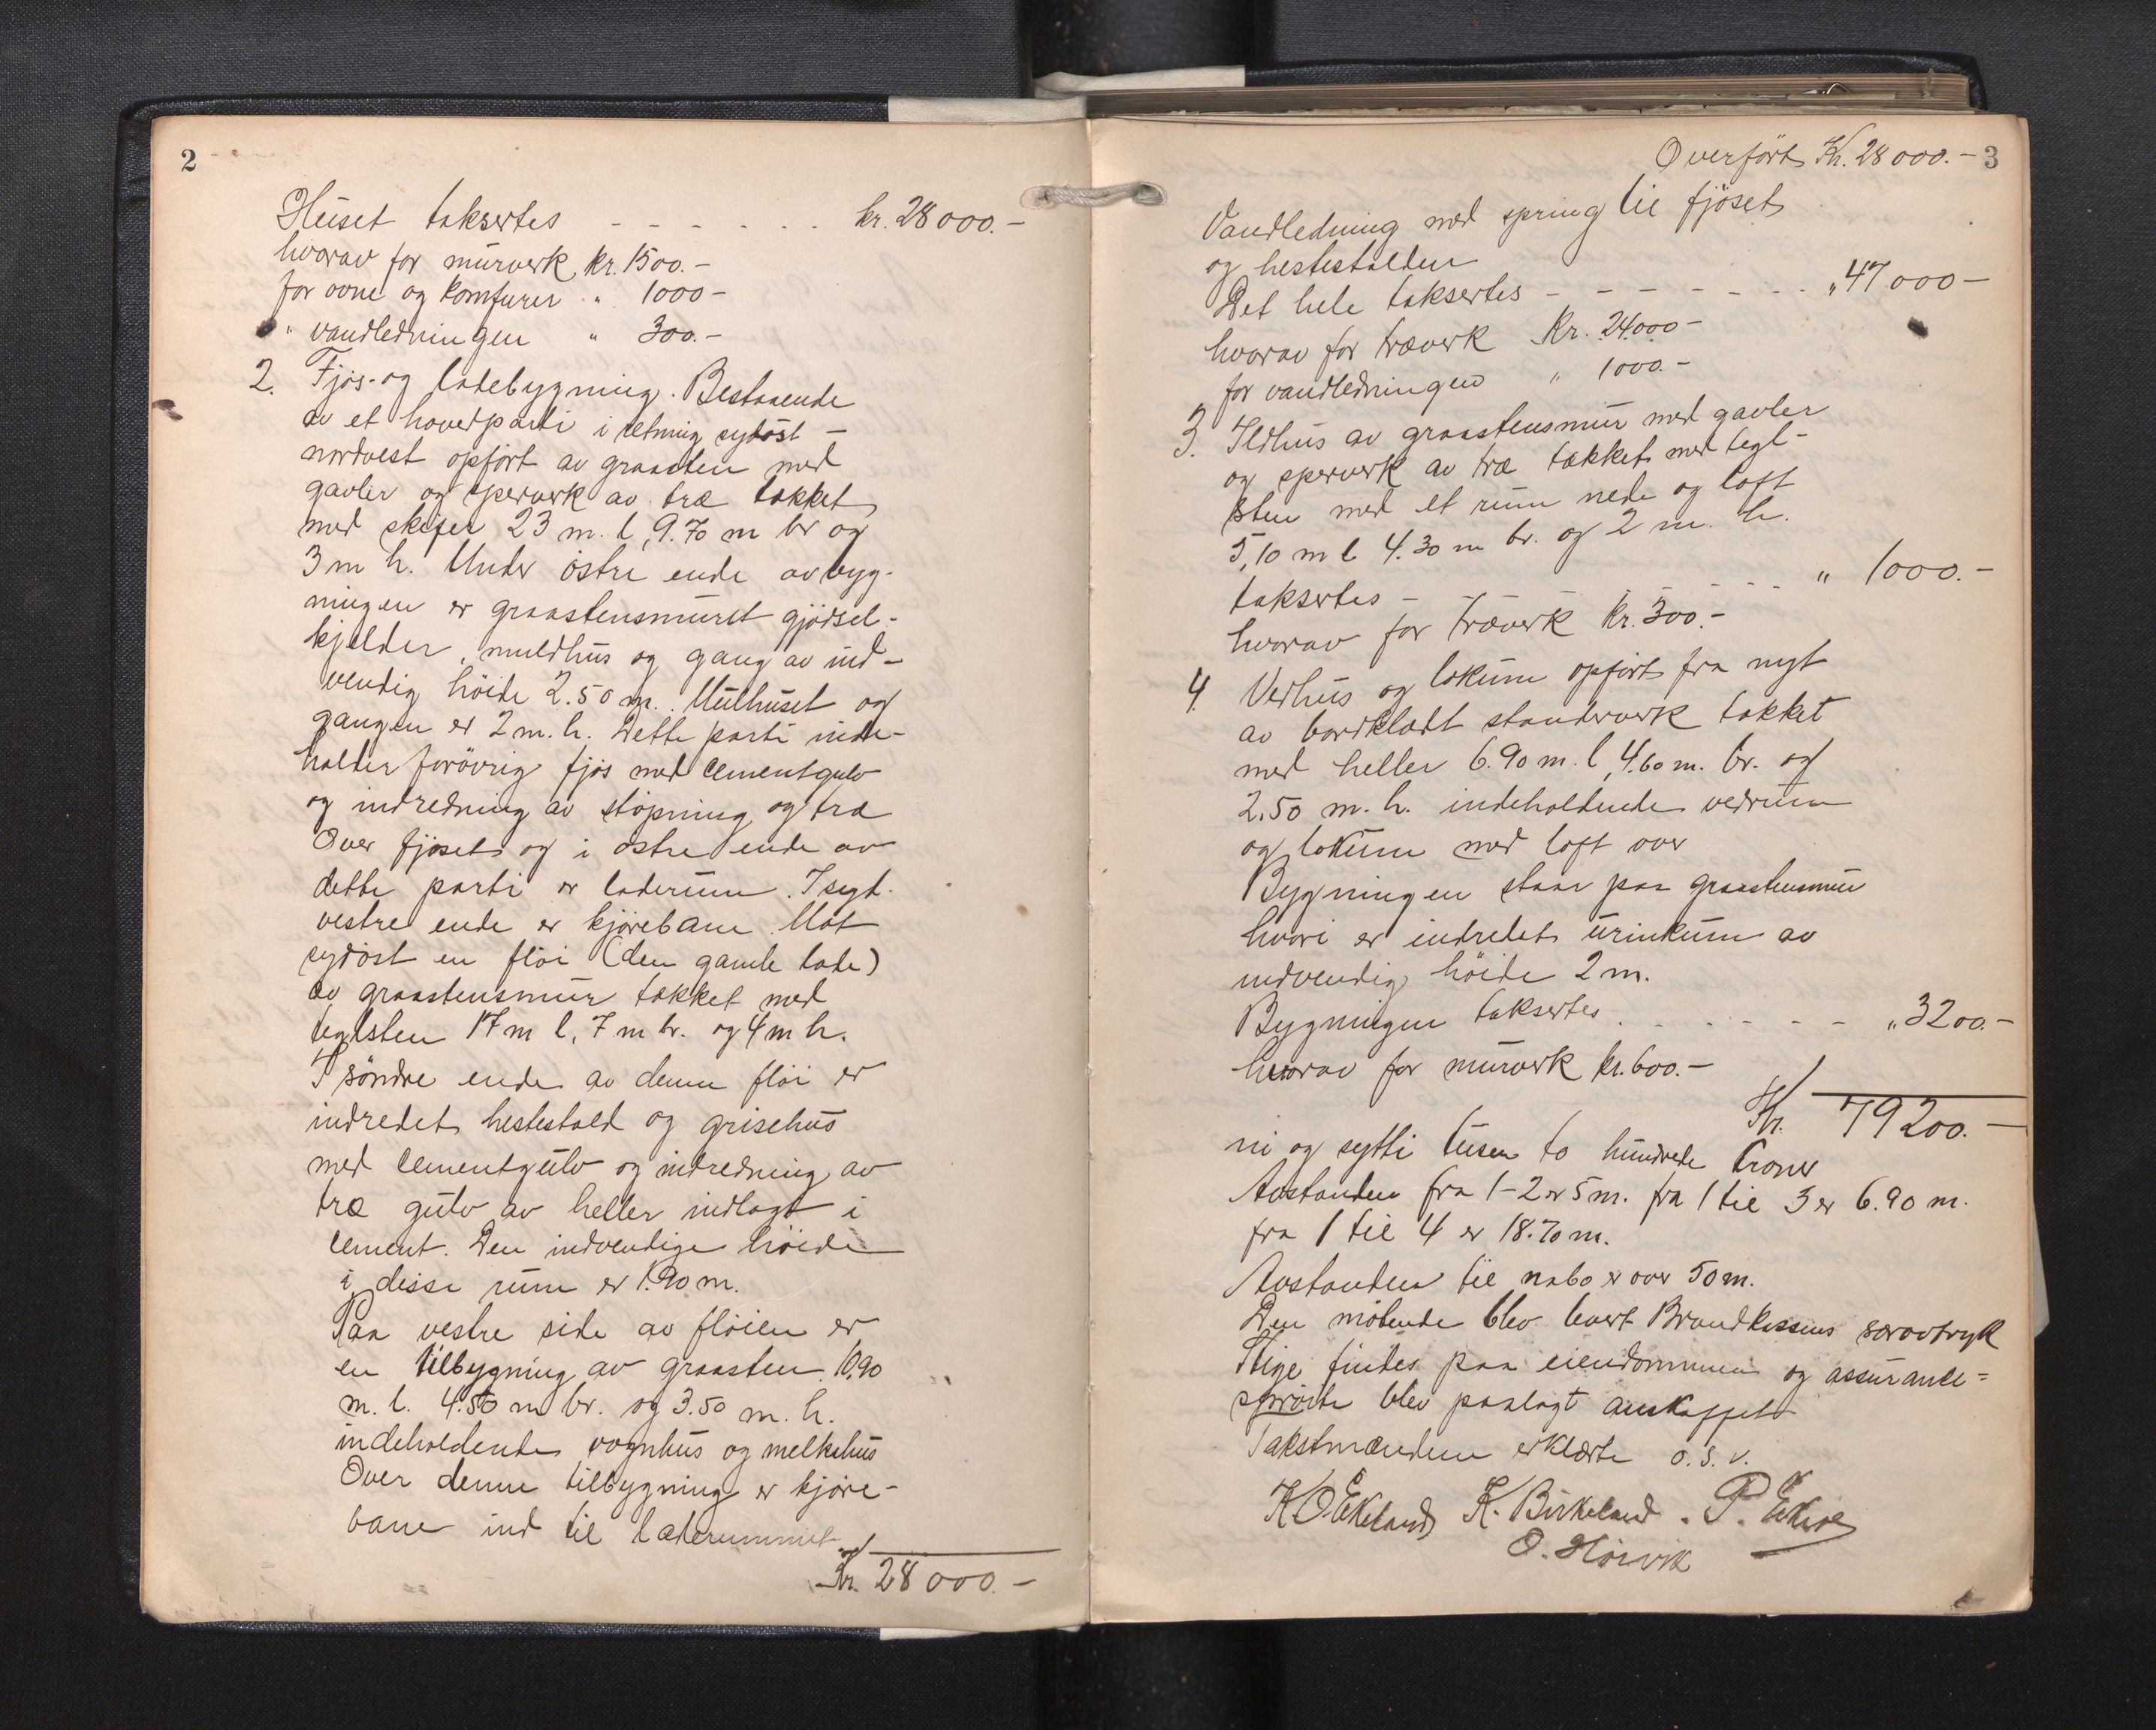 2
Huset taksertes - - - - - - kr. 28000.-
hvorav for murverk kr. 1500.-
for ovne og komfurer " 1000-
" vandledningen " 300.-
2. Fjøs- og ladebygning. Bestaaende
av et hovedparti i retning sydøst -
nordvest opført av graasten med
gavler og sperverk av træ tækket
med skifer 23 m. l, 9.70 m br og
3 m h. Under østre ende av byg-
ningen er graastensmuret gjødsel-
kjelder, muldhus og gang av ind-
vendig höide 2.50 m. Mulhuset og
gangen er 2 m. h. Dette parti inde-
holder forövrig fjös med cementgulv
og indredning av støpning og træ
Over fjøset og i østre ende av
dette parti er laderum. I syd-
vestre ende er kjørebane. Mot
sydøst en fløi (den gamle lade)
av graastensmur tækket med
teglsten 17 m l, 7 m br. og 4 m h.
I söndre ende av denne fløi er
indredet hestestald og grisehus
med cementgulv og indredning av
træ gulv av heller indlagt i
cement. Den indvendige höide
i disse rum er 1.90 m.
Paa vestre side av fløien er
en tilbygning av graasten 10,90
m. l. 4.50 m br. og 3.50 m. h.
indeholdende vognhus og melkehus
Over denne tilbygning er kjøre-
bane ind til laderummet
Kr. 28000.-
Overført Kr. 28000.- 3
Vandledning med spring til fjöset
og hestestalden
Det hele taksertes - - - - - - - " 47000-
hvorav for træverk Kr. 24.000-
for vandledningen " 1000.-
3. Ildhus av graastensmur med gavler
og sperverk av træ tækket med tegl-
sten med et rum nede og loft
5,10 m l 4.30 m br. og 2 m. h.
taksertes - - - - - " 1000.-
hvorav for træverk kr. 300.-
4. Vedhus og lokum opført fra nyt
av bordklædt standerverk tækket
med heller 6.90 m. l, 4.60 m. br. og
2.50 m. h. indeholdende vedrum
og lokum med loft over
Bygningen staar paa graastensmur
hvori er indredet urinkum av
indvendig höide 2 m.
Bygningen taksertes. - - - - - - " 3200.-
hvorav for murverk kr. 600.-
Kr. 79200.-
ni og sytti tusen to hundrede kroner
Avstanden fra 1-2 er 5 m. fra 1 til 3 er 6.90 m.
fra 1 til 4 er 18.70 m.
Avstanden til nabo er over 50 m.
Den møtende blev levert Brandkassens særavtryk
Stige findes paa eiendommen og assurance=
sprøite blev paalagt anskaffet
Takstmændene erklærte o. s. v.
K O Ekeland K. Birkeland. P.
O. Hörvik